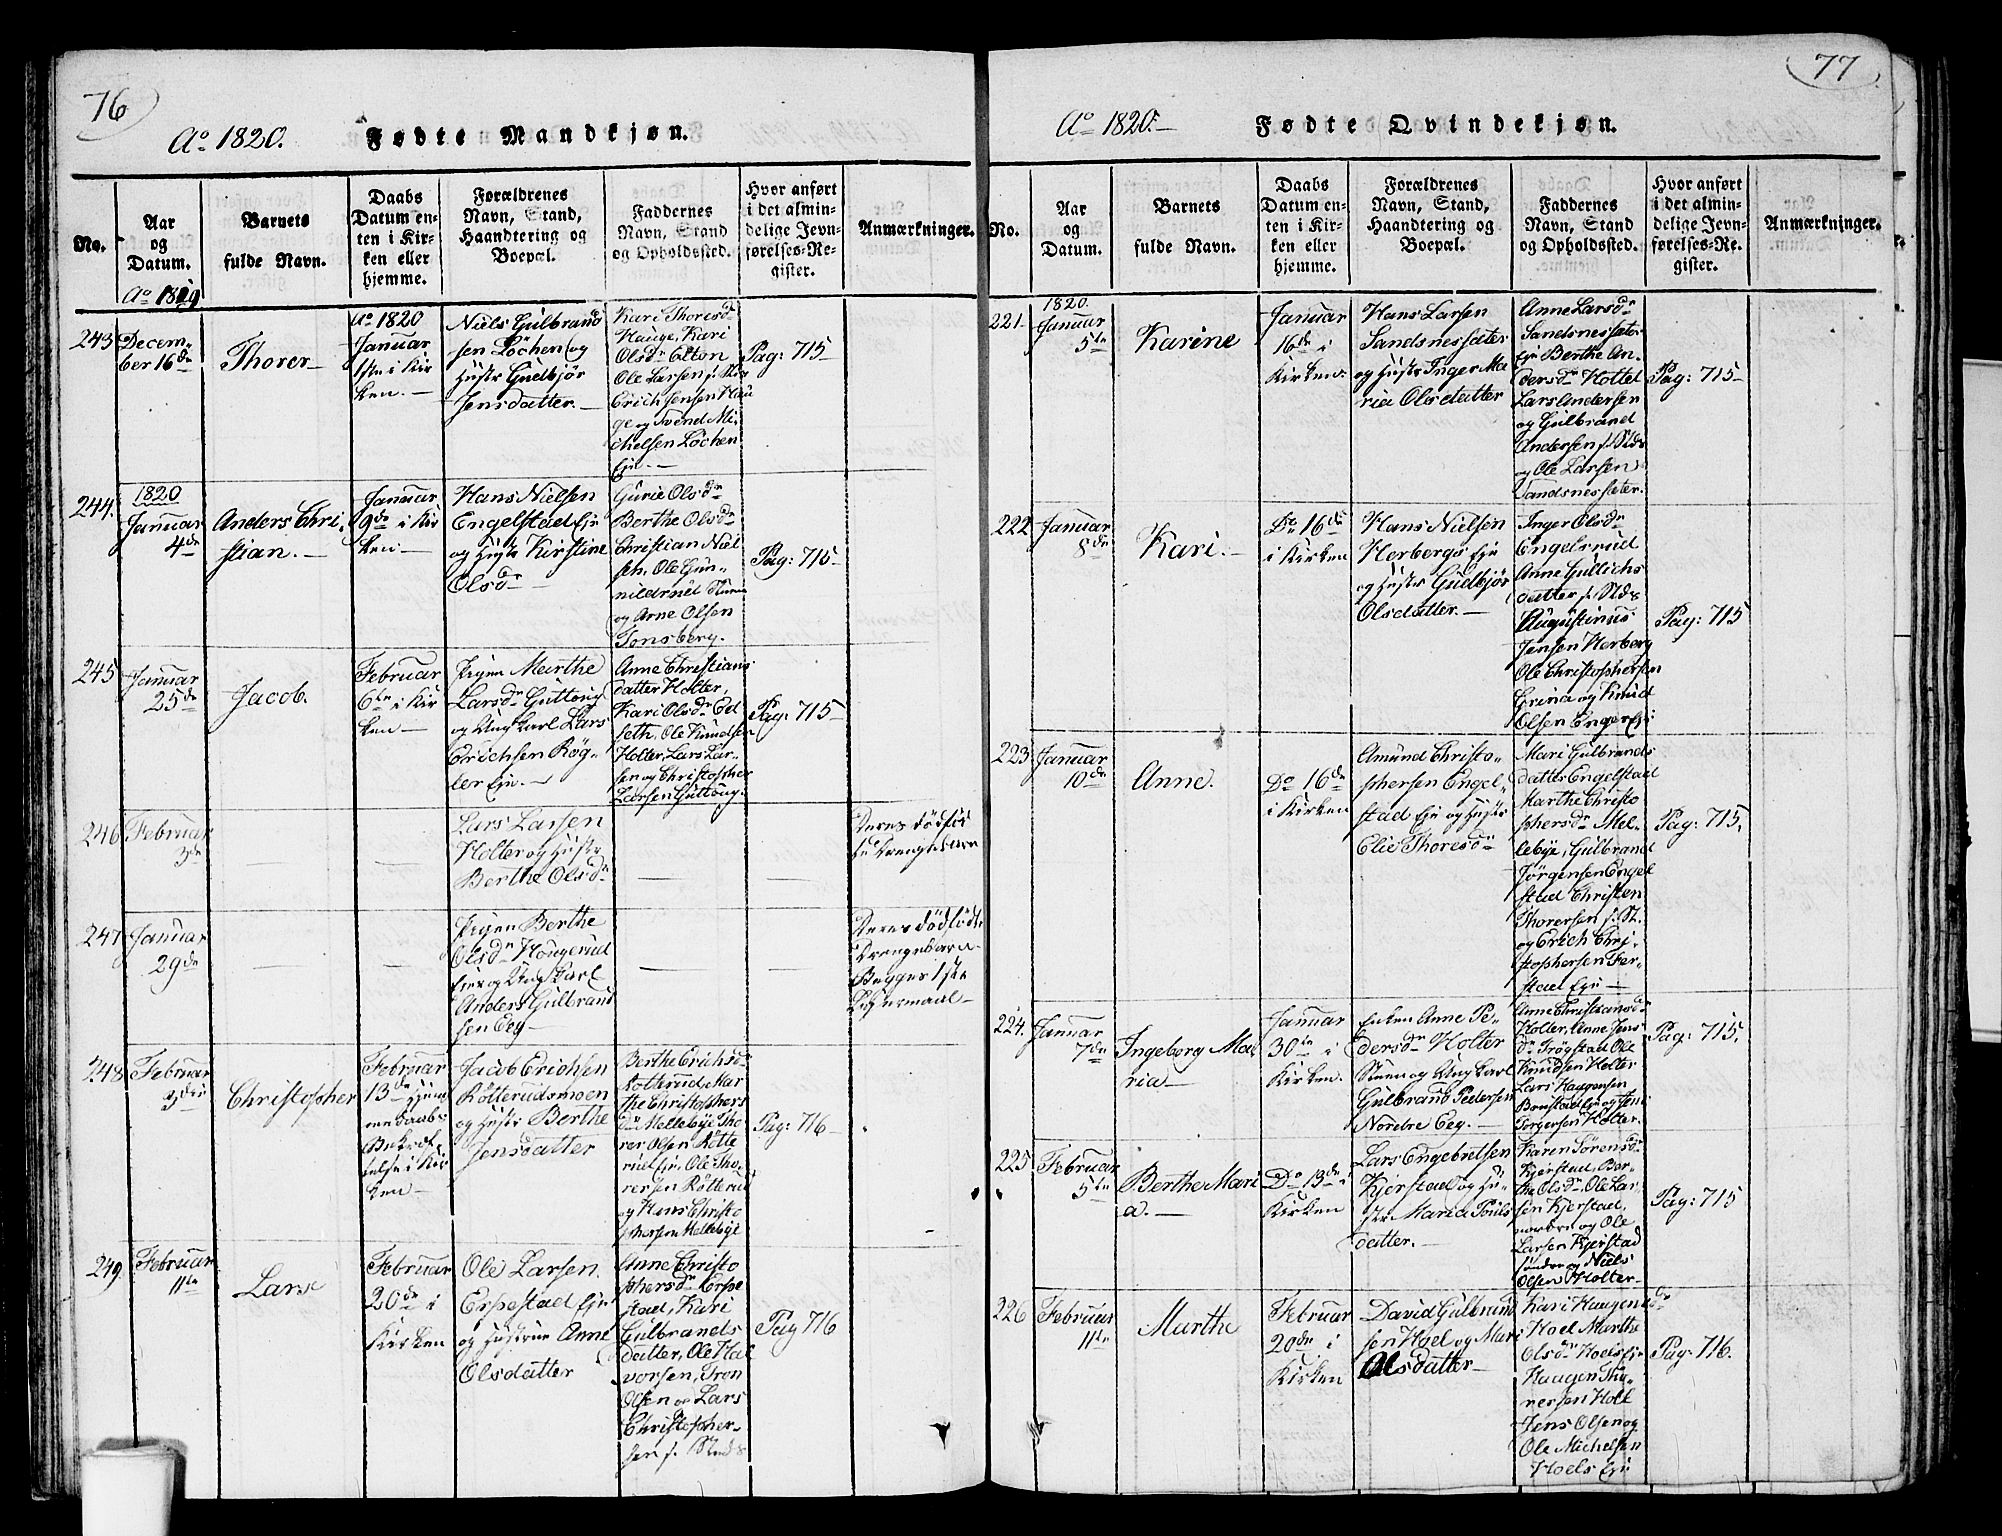 76
Ao 1820.
Fødte Mandkjøn.
No.
Aar
og
Datum.
Barnets
fulde Navn.
Daabs
Datum en-
ten i Kir-
ken eller
hjemme.
Forældrenes
Navn, Stand,
Haandtering og
Boepæl.
Faddernes
Navn, Stand
og Opholdssted.
Hvor anført
i det almin-
delige Jevn-
førelses-Re-
gister.
Anmærkninger.
Ao 1819
243
Decem-
ber 16de
Thorer
Ao 1820
Januar
1ste i Kir
ken.
Niels Gulbrand
sen Löchen og
Hustr Gudbjør
Jensdatter.
Kari Thoresdr
Hauge, Kari
Olsdr Elton
Ole Larsen
Erich Jensen Hau
ge og Svend Mi-
chelsen Löchen
Eje.
Pag: 715
244.
1820
Januar
4de
Anders Chri-
stian.
Januar
9de i Kir
ken
Hans Nielsen
Engelstad Eje
og Hustr Kirstine
Olsdr
Gurie Olsdr
Berthe Olsdr
Christian Niel
sen, Ole Gun-
nildrud
og Arne Olsen
Tonsberg.
Pag: 715
245
Januar
25de
Jacob.
Februar
6te i Kir
ken
Pigen Marthe
Larsdr Guttoug
og Ungkarl Lars
Erichsen Røg-
ler Eje.
Anne Christians
datter Holter,
Kari Olsdr Ed
seth, Ole Knudsen
Holter, Lars Lar-
sen og Christopher
Larsen Guttoug.
Pag: 715
246
Februar
3de
Lars Larsen
Holter og Hustr
Berthe Olsdr
Deres dödfød
te Drengebarn
247
Januar
29de
Pigen Berthe
Olsdr Hougerud
Eje og Ung Karl
Anders Gulbrand
sen Eeg
Deres dödfödte
Drengebarn
Begges 1ste
Lejermaal
248
Februar
3die
Christopher
Februar
13de Hjem
me Daabs
Bekræft
telse i Kir
ken
Jacob Erichsen
Rötterudsmoen
og Hustr Berthe
Jensdatter
Berthe Erichsdr
Rotterud, Mar
the Christophers
dr Mellebye, Tho
rer Olsen Rötte
rud Eje, Ole Tho-
rersen Rötterud
og Hans Christo
phersen Mellebye
Pag: 716
249.
Februar
11te
Lars
Februar
20de i
Kirken
Ole Larsen
Erpestad Eje
og Hustrue Anne
Olsdatter
Anne Christo
phersdr Erpe
stad, Kari
Gulbrands
datter, Ole Hal
vorsen, Tron
Olsen og Lars
Christopher-
sen
Pag 716
77
Ao 1820.
Fødte Qvindekjøn.
No.
Aar
og
Datum.
Barnets
fulde Navn.
Daabs
Datum en-
ten i Kir-
ken eller
hjemme.
Forældrenes
Navn, Stand,
Haandtering og
Boepæl.
Faddernes
Navn, Stand
og Opholdssted.
Hvor anført
i det almin-
delige Jevn-
førelses-Re-
gister.
Anmærkninger.
221.
1820.
Januar
5te
Karine
Januar
16de i
Kirken.
Hans Larsen
Sandsnessæter
og Hustr Inger Ma-
ria Olsdatter
Anne Larsdr
Sandsnessæter
Eje Berthe An-
dersdr Hottel
Lars Andersen
og Gulbrand
Andersen
og Ole Larsen
Sandsnessæter.
Pag: 715
222
Januar
8de
Kari.
Do 16de
i Kirken
Hans Nielsen
Herbergs Eje
og Hustr Gudbjør
Olsdatter.
Inger Olsdr
Engelsrud
Anne Gullichs
datter
Augustinus
Jensen Herberg
Ole Christophersen
Grina og Knud
Olsen Enger Eje
Pag: 715
223
Januar
10de
Anne.
Do 16de
i Kirken
Amund Christo-
phersen Engel-
stad Eje og Hustr
Elie Thoresdr
Mari Gulbrands
datter Engelstad
Marthe Christo
phersdr Mel-
lebye, Gulbrand
Jørgensen Engel
stad Christen
Thorersen
og Erich Chri-
stophersen Fer-
stad Eje
Pag: 715.
224.
Januar
7de
Ingeborg Ma-
ria
Januar
30te i
Kirken.
Enken Anne Pe-
dersdr Holter
Stuen og Ungkarl
Gulbrand Pedersen
Nordre Eeg.
Anne Christiansdr
Holter, Anne Jens
dr Trögstad Ole
Knudsen Holter
Lars Haagensen
Bonstad Eje og Jens
Jørgensen Holter.
Pag: 715.
225
Februar
5te
Berthe Mari
a.
Do 13de i
Kirken
Lars Engebretsen
Kjerstad og Hu-
str Maria Pouls
datter.
Karen Sörensdr
Kjerstad, Ber-
the Olsdr Ole Lar
sen Kjerstad,
nordre og Ole
Larsen Kjerstad
søndre og Niels
Olsen Holter
Pag: 715
226
Februar
11te
Marthe
Februar
20de i
Kirken
David Gulbrand
sen Hoel og Mari
Olsdatter
Kari Haagensdr
Hoel Marthe
Olsdr Hoels Eje
Haagen Tho-
rersen Hoel
Jens Olsen og
Ole Michelsen
Hoels Eje
Pag: 716.